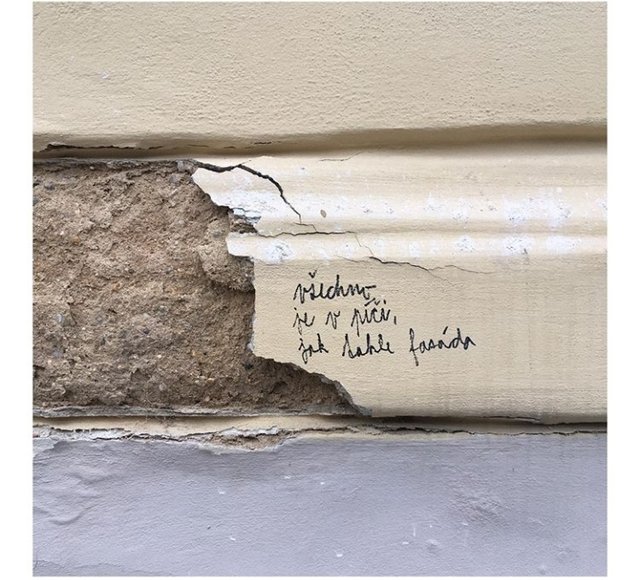 všechno
je v píči,
jak tahle fasáda